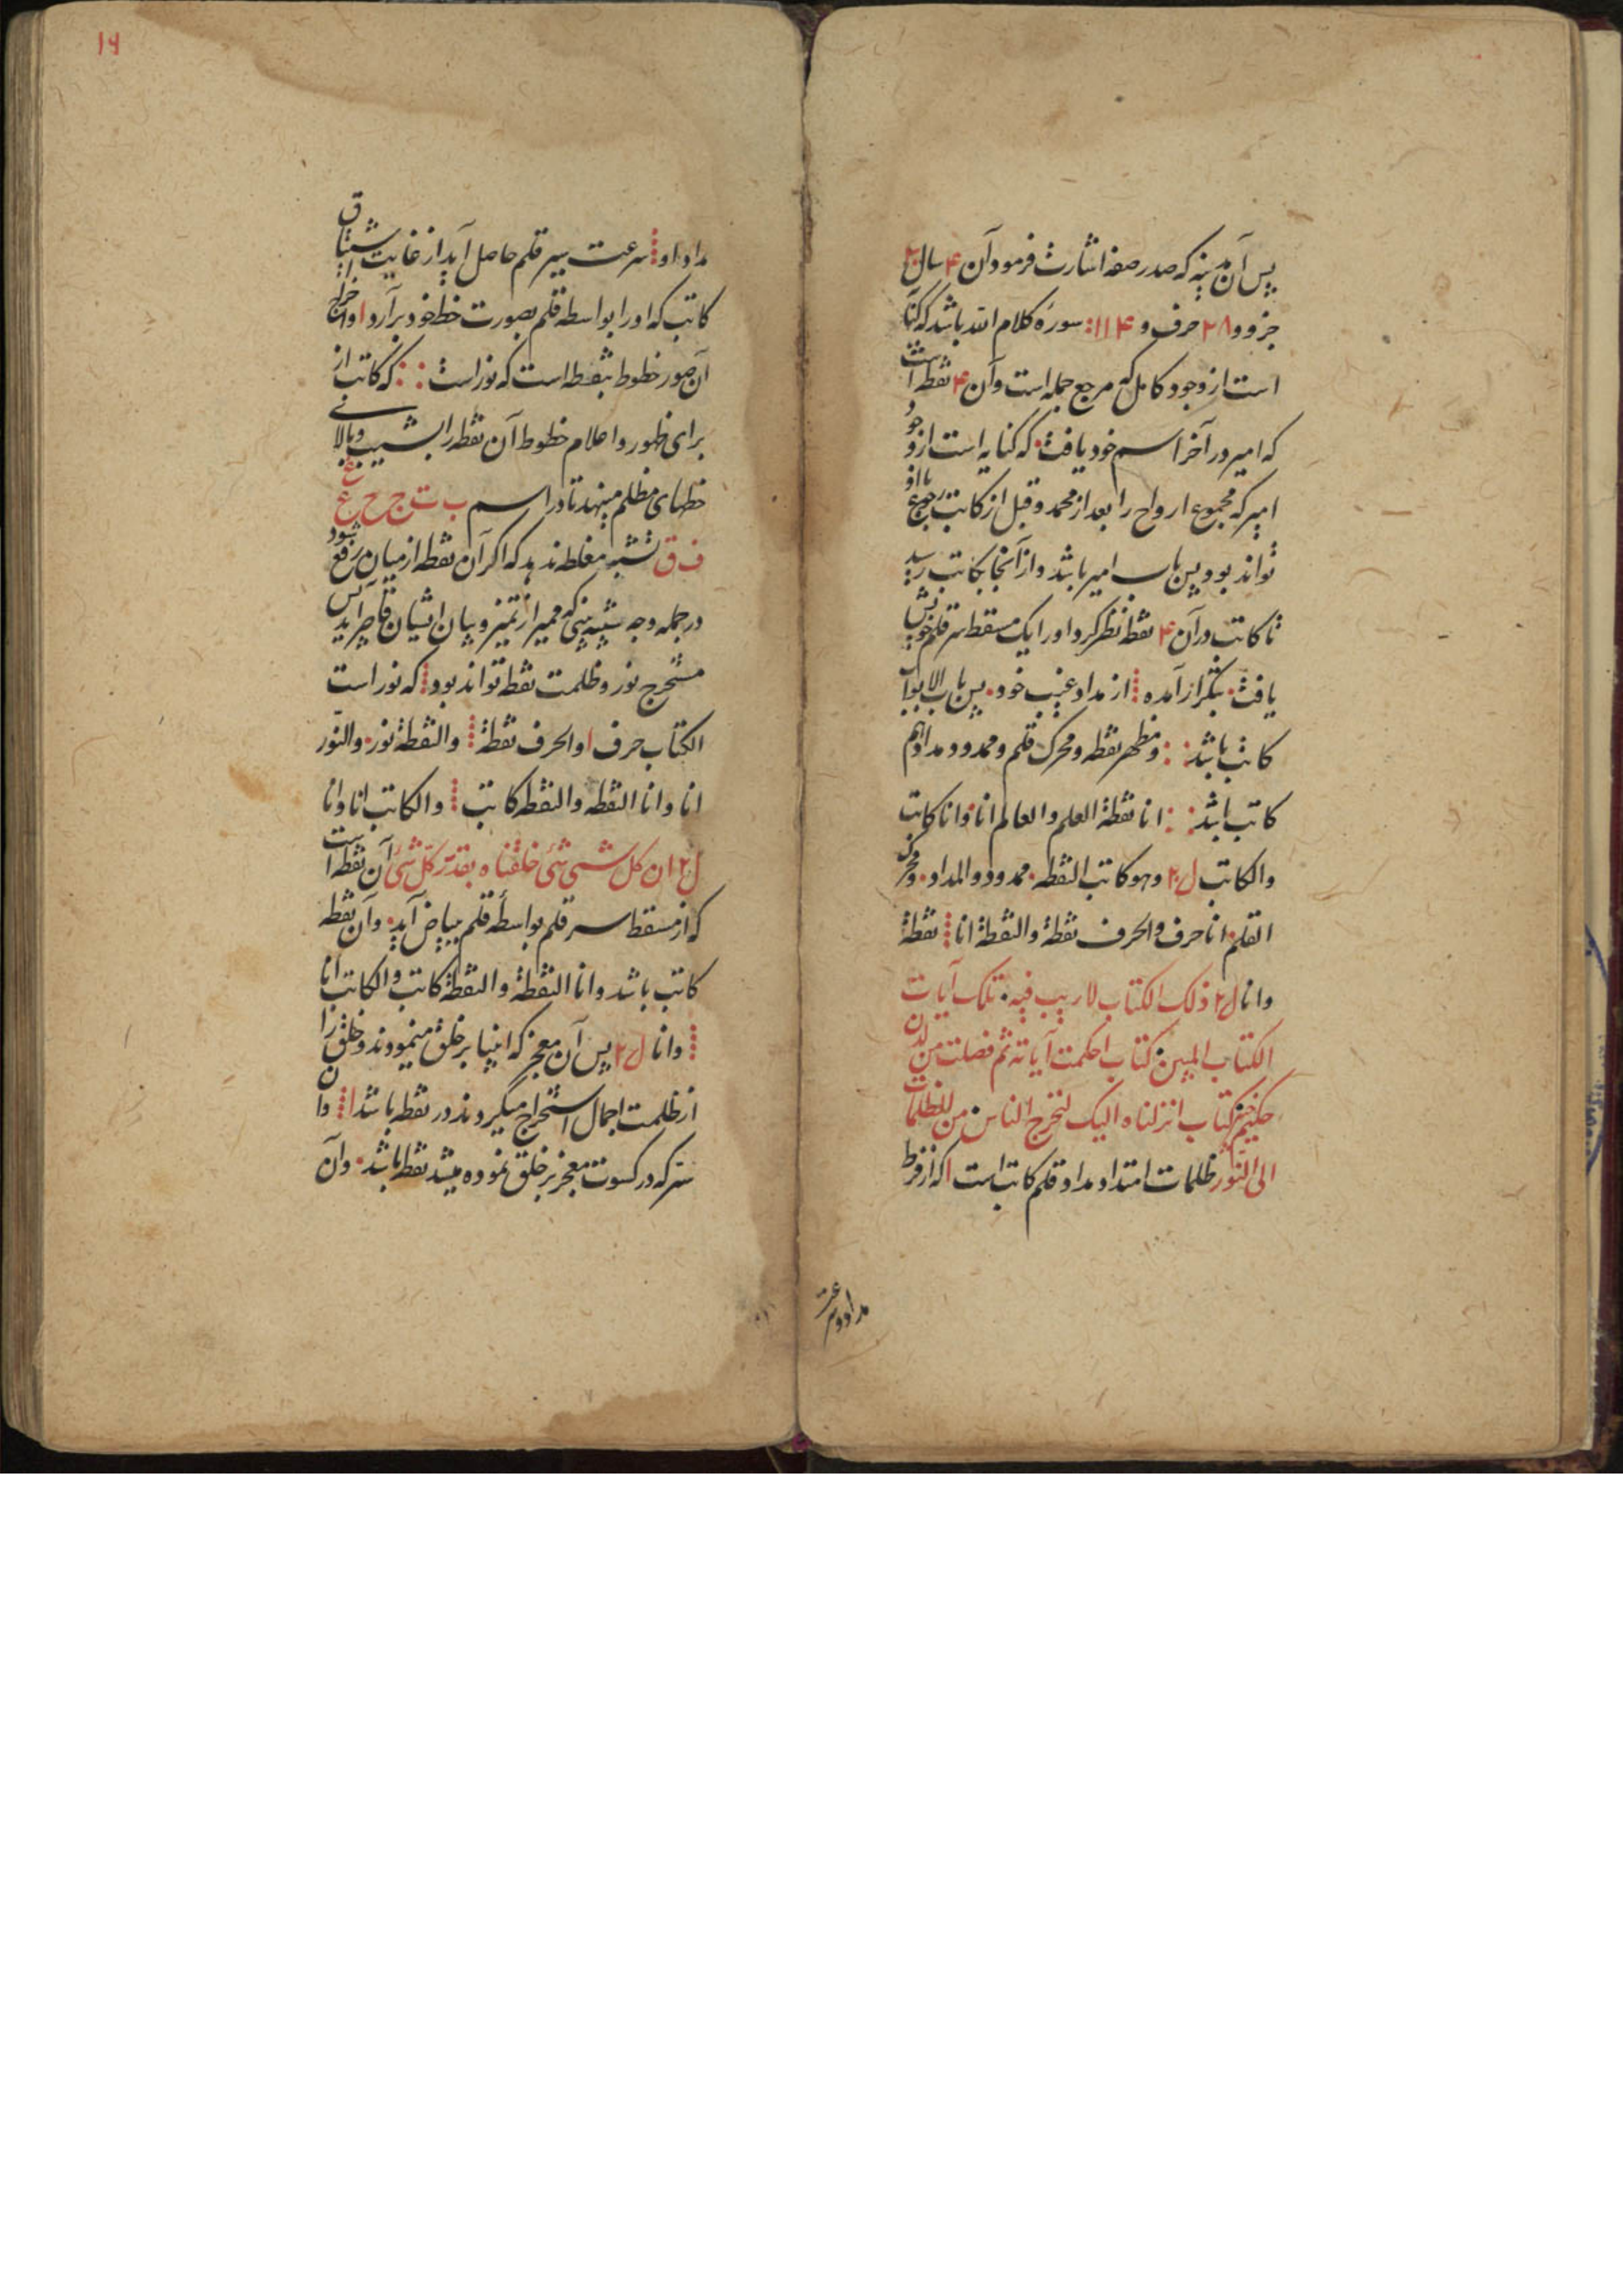 پس آن مدینه که صدر صفه اشارت فرمود آن ۴ سال
جزو و ۲۸ حرف و ۱۱۴ سوره کلام الله باشد که کتاب
است از وجود کامل که مرجع جمله است و آن ۴ نقطه است
که امیر در آخر اسم خود یافت که کنایه است از وجود
امیر که مجموع ارواح را بعد از محمد و قبل از کاتب رجوع با او
تواند بود پس باب امیر باشد و از آنجا بکاتب رسید
تا کاتب در آن ۴ نقطه نظر کرد او را یک مسقط سر قلم خویش
یافت بتکرار آمده از مداد غیب خود پس باب الابواب
کاتب باشد و مظهر نقطه و محرک قلم و ممدود مداد هم
کاتب باشد انا نقطة العلم و العالم انا و انا کاتب
والکاتب ل۲ وهو کاتب النقطه ممدود والمداد و محرک
القلم انا حرف والحرف نقطة والنقطة انا نقطة
وانا ل۲ ذلک الکتاب لاریب فیه تلک آیات
الکتاب المبین کتاب احکمت آیاته ثم فصلت من لدن
حکیم کتاب انزلناه الیک لتخرج الناس من الظلمات
الی النور ظلمات امتداد مداد قلم کاتب است ا که از فرط
مداد و سرعت
۱۶
مداد او سرعت سیر قلم حاصل آید از غایت اشتیاق
کاتب که او را بواسطه قلم بصورت خط خود برآرد ا و اخراج
آن صور خطوط بنقطه است که نور است که کاتب از
برای ظهور و اعلام خطوط آن نقطه را بشیب و بالای
خطهای مظلم مینهد تا در اسم ب ت ج ح ع غ
ف ق شبه مغلطه ندهد که اگر آن نقطه از میان مرتفع شود
در جمله وجه شبیه بینی که ممیز از تمیز و بیان ایشان قاصر آید پس
مستخرج نور و ظلمت نقطه تواند بود که نور است
الکتاب حرف ا والحرف نقطة والنقطة نور والنور
انا وانا النقطه والنقطه کاتب والکاتب انا وانا
ل۲ ان کل شی شئ خلقناه بقدر کل شئ آن نقطه است
که از مسقط سر قلم بواسطه قلم ببیاض آید و آن نقطه
کاتب باشد وانا النقطة والنقطة کاتب والکاتب انا
وانا ل۲ پس آن معجز که انبیا بر خلق مینمودند و خلق را
از ظلمت اجمال استخراج میکردند در نقطه باشد ا و آن
سر که در کسوت معجز بر خلق نموده میشد نقطه باشد و آن